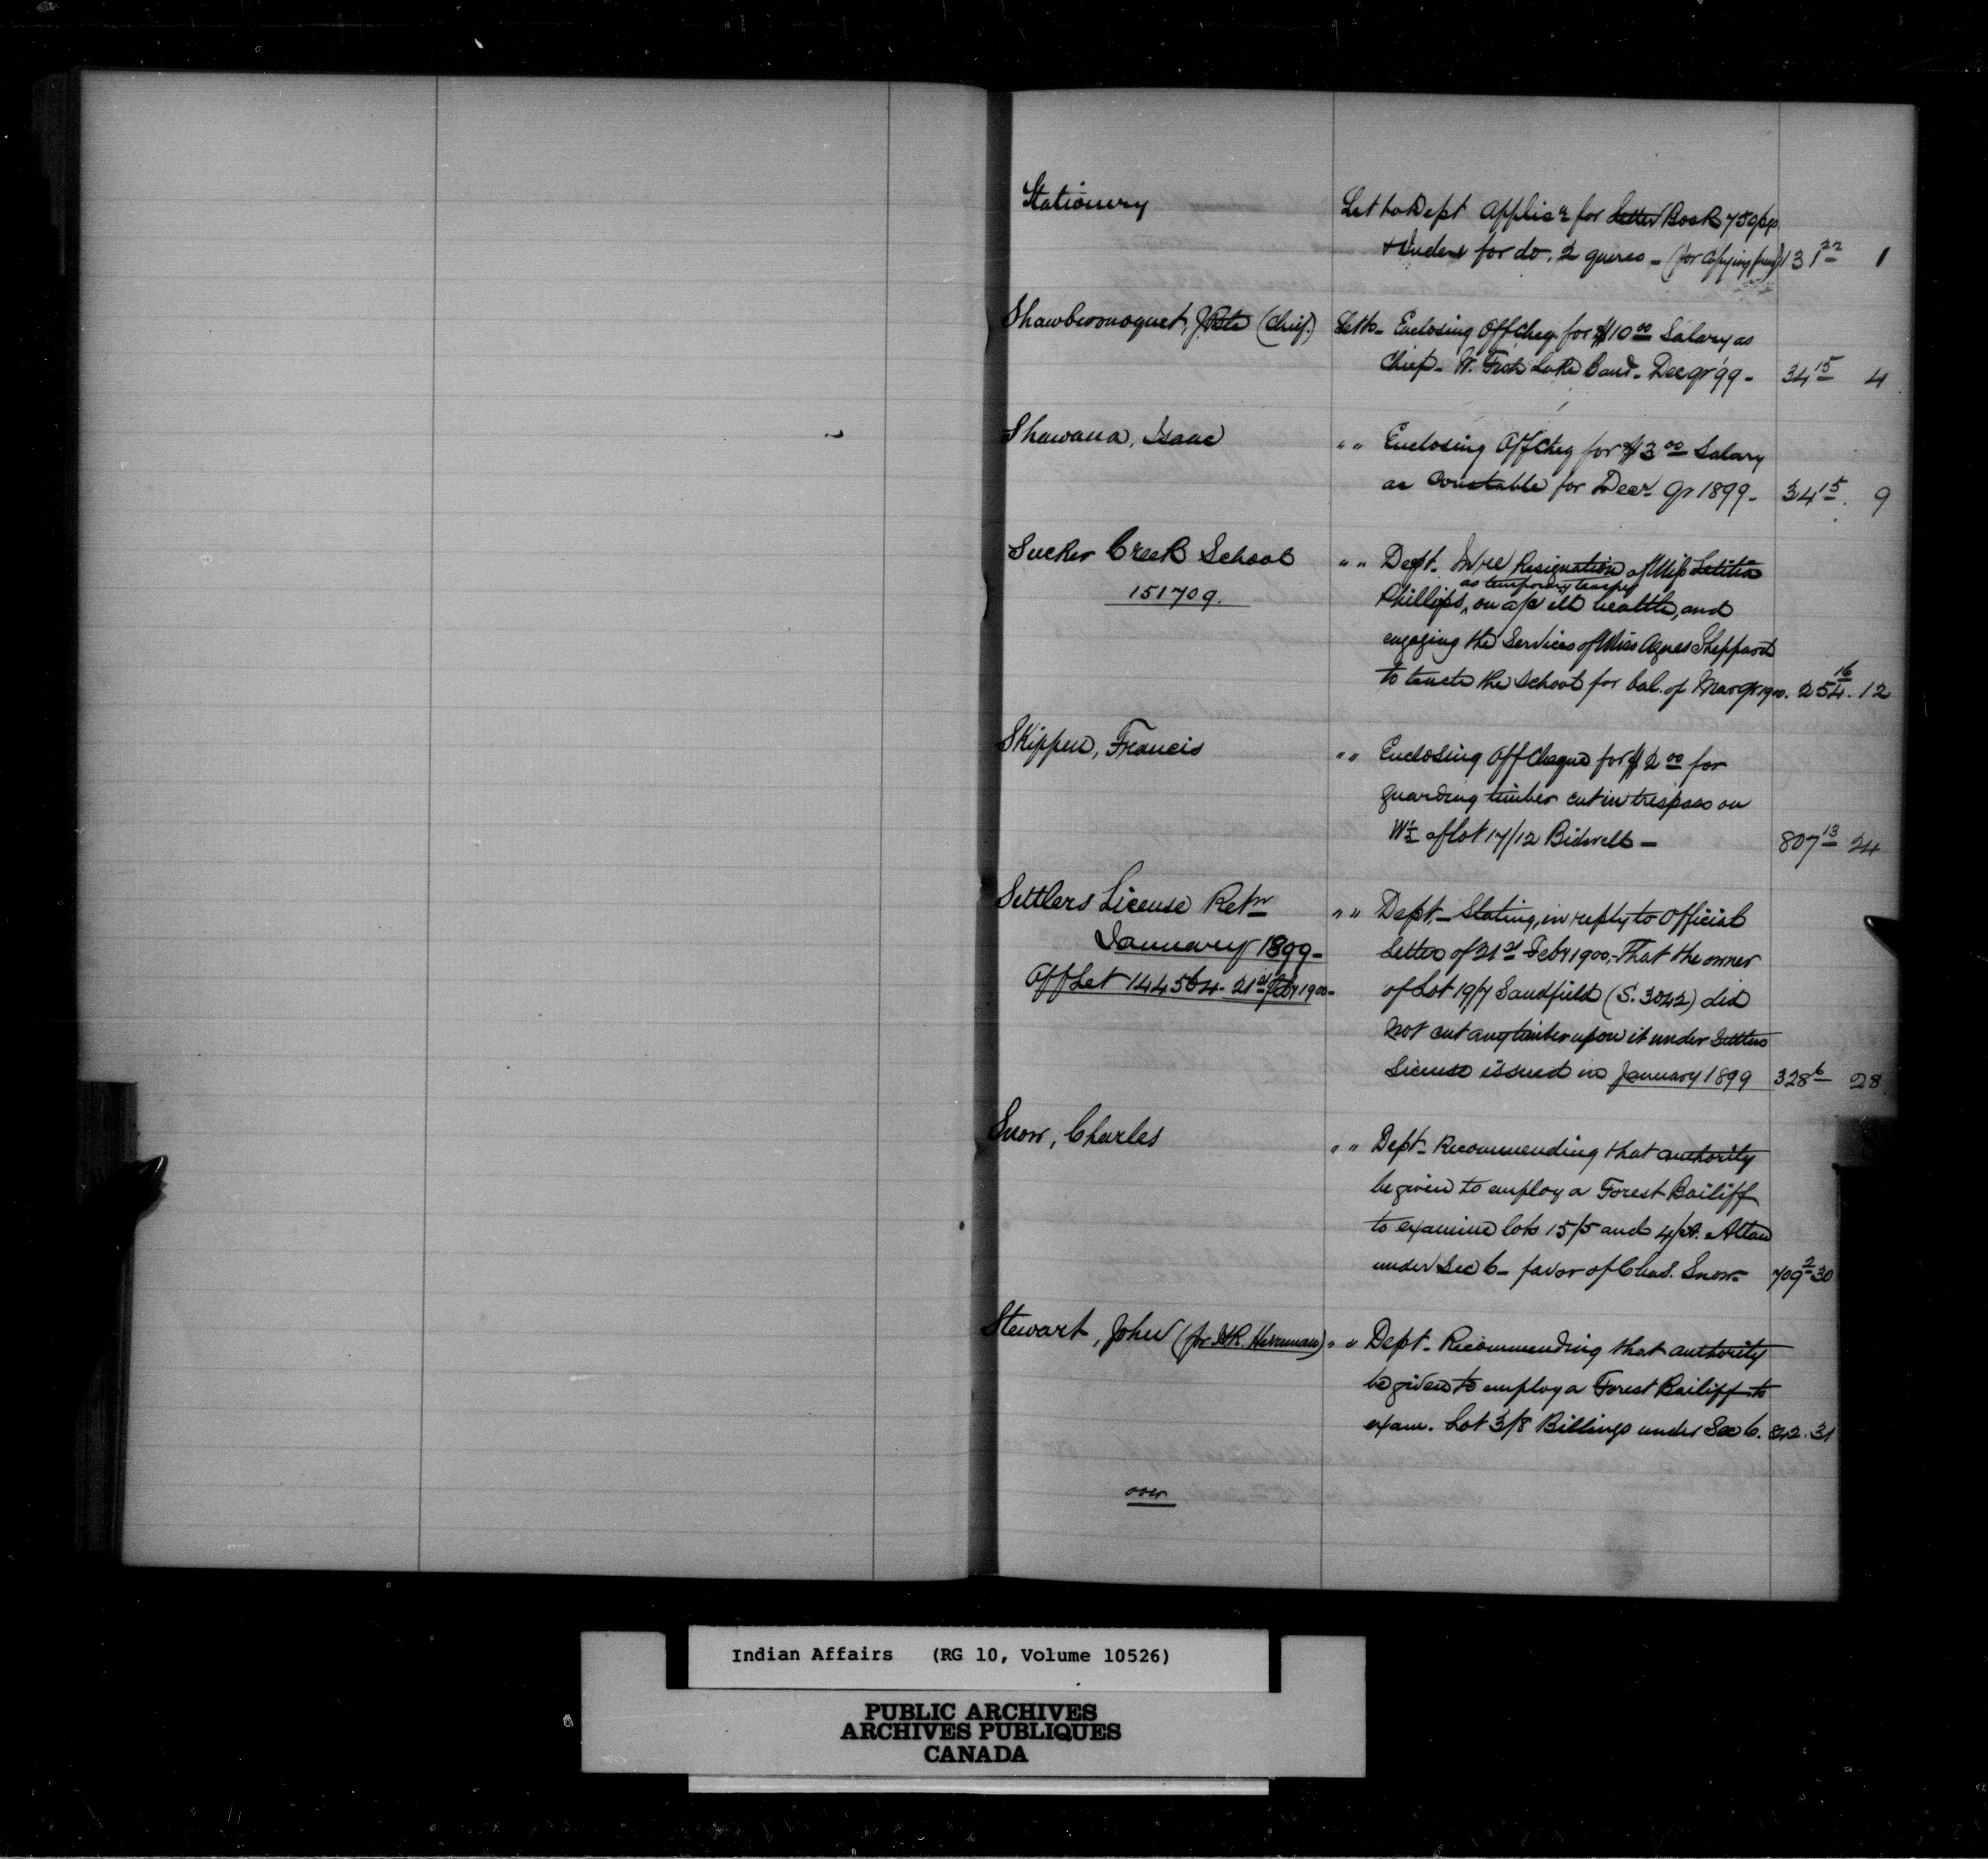 Stationery Let to Dept Applicn for Letter Book 750 pp.
& Index for do. 2 quires - (for Copying press) 131 22 1
Shawbosnoquet, J. Bte (Chief.) Let to - Enclosing Off Cheq for $10 00 Salary as
Chief - W. Fish Lake Band - Dec qr '99 - 34 15 4
Shawana, Isaac " " Enclosing Off Cheq for $3 00 Salary
as Constable for Decr qr 1899 - 34 15. 9
Sucker Creek School " " Dept. In re Resignation of Miss Letitia
as temporary teacher
151709. Phillips, ^ on a/c ill health, and
engaging the Services of Miss Agnes Sheppard
to teach the school for bal. of Mar qr 1900. 254 16. 12
Skippen, Francis " " Enclosing Off Cheque for $2 00 for
guarding timber cut in trespass on
W ½ of Lot 17/12 Bidwell - 807 13 24
Settlers License Retn " " Dept - Stating, in reply to Official
January 1899 - Letter of 21st Feby 1900, - That the owner
Off Let 144564 - 21st Feby 1900 - of Lot 19/7 Sandfield (S. 3042) did
not cut any timber upon it under Settlers
License issued in January 1899 328 6 28
Snow, Charles " " Dept - Recommending that authority
be given to employ a Forest Bailiff
to examine lots 15/5 and 4/A. Allan
under Sec 6 - favor of Chas. Snow - 709 2 30
Stewart, John (for H.R. Herriman) " " Dept - Recommending that authority
be given to employ a Forest Bailiff to
exam. Lot 3/8 Billings under Sec 6. 812. 31
over
Indian Affairs (RG 10, Volume 10526)
PUBLIC ARCHIVES
ARCHIVES PUBLIQUES
CANADA